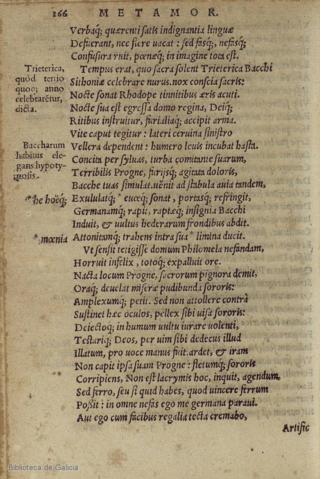 166 METAMOR.
Verbaq́; quærenti satis indignantia linguæ
Defuerant, nec flere uacat: sed fasq́;, nefasq́;
Confusura ruit, pœnæq́; in imagine tota est.
Trieterica, quód tertio quoq; anno celebrarétur, dicta.
Tempus erat, quo sacra solent Trieterica Bacchi
Sithoniæ celebrare nurus. nox conscia sacris:
Nocte sonat Rhodope tinnitibus æris acuti.
Nocte sua est egressa domo regina, Deiq́;
Ritibus instruitur, furialiaq́; accipit arma.
Vite caput tegitur: lateri ceruina sinistro
Baccharum habitus elegans hypotyposis.
Vellera dependent: humero leuis incubat hasta.
Concita per syluas, turba comitante suarum,
Terribilis Progne, furijsq́; agitata doloris,
Bacche tuas simulat. uênit ad stabula auia tandem,
*he hoêq́;
Exululatq́; * euœq́; sonat, portasq́; refringit,
Germanamq́; rapit, raptæq́; insignia Bacchi
Induit, & uultus hederarum frondibus abdit.
*mœnia
Attonitamq́; trahens intra sua * limina ducit.
Vt sensit tetigisse domum Philomela nefandam,
Horruit infelix, totoq́; expalluit ore.
Nacta locum Progne, sacrorum pignora demit,
Oraq́; deuelat miseræ pudibunda sororis:
Amplexumq́; petit. Sed non attollere contrà
Sustinet hæc oculos, pellex sibi uisa sororis:
Deiectoq́; in humum uultu iurare uolenti,
Testariq́; Deos, per uim sibi dedecus illud
Illatum, pro uoce manus fuit. ardet, & iram
Non capit ipsa suam Progne: fletumq́; sororis
Corripiens, Non est lacrymis hoc, inquit, agendum,
Sed ferro, seu si quid habes, quod uincere ferrum
Possit: in omne nefas ego me germana paraui.
Aut ego cum facibus regalia tecta cremabo,
Artific
Biblioteca de Galicia